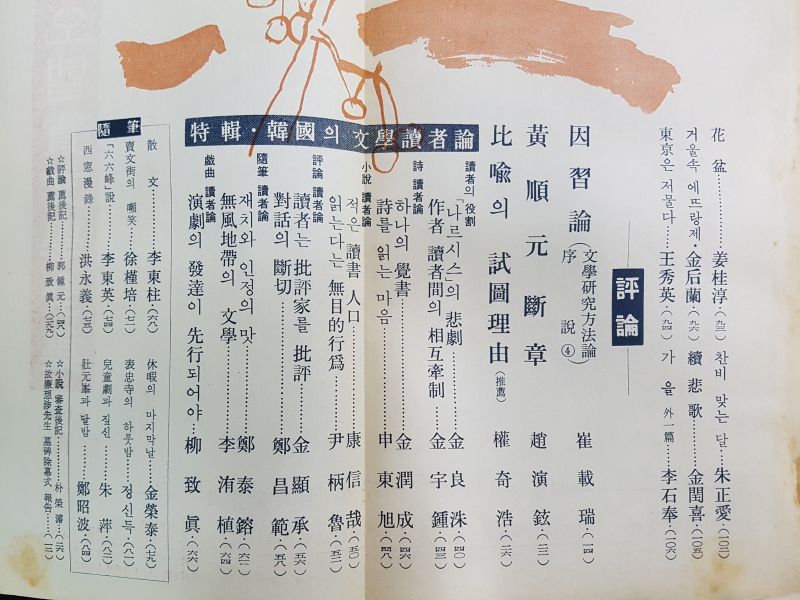 花盆……姜桂淳(九三) 찬비 맞는 달……朱正愛(一○三)
거울속 에뜨랑제·金后蘭(九六) 續悲歌……金閏喜(一○五)
東京은 저물다……王秀英(九四) 가을 外一篇……李石奉(一○六)
評論
因習論(文學硏究方法論序說④) 崔載瑞(一四)
黃順元斷章 趙演鉉(三二)
比喩의 試圖理由(推薦) 權奇浩(二六)
特輯·韓國의 文學讀者論
讀者의 役割
「나르시스」의 悲劇……金良洙(四○)
作者 讀者間의 相互牽制……金宇鍾(四三)
詩 讀者論
하나의 覺書……金潤成(四六)
詩를 읽는 마음……申東旭(四八)
小說 讀者論
적은 讀書 人口……康信哉(五○)
읽는다는 無目的行爲……尹柄魯(五二)
評論 讀者論
讀者는 批評家를 批評……金顯承(五六)
對話의 斷切……鄭昌範(五八)
隨筆 讀者論
재치와 인정의 맛……鄭泰鎔(六二)
無風地帶의 文學……李洧植(六四)
戱曲 讀者論
演劇의 發達이 先行되어야·柳致眞(六六)
隨筆
散文……李東柱(六八) 休暇의 마지막날……金榮泰(七九)
賣文街의 嘲笑……徐槿培(七二) 表忠寺의 하룻밤……정신득(八一)
「六六峰」說……李東英(七四) 兒童劇과 짚신……朱萍(八三)
西窓漫錄……洪永義(七五) 壯元峯과 달밤……鄭昭波(八四)
☆評論 薦後記……郭鍾元(四九) ☆小說 審査後記……朴榮濬(二六)
☆戱曲 薦後記……柳致眞 ☆故廉想涉先生 墓碑除幕式 報告……(一三)